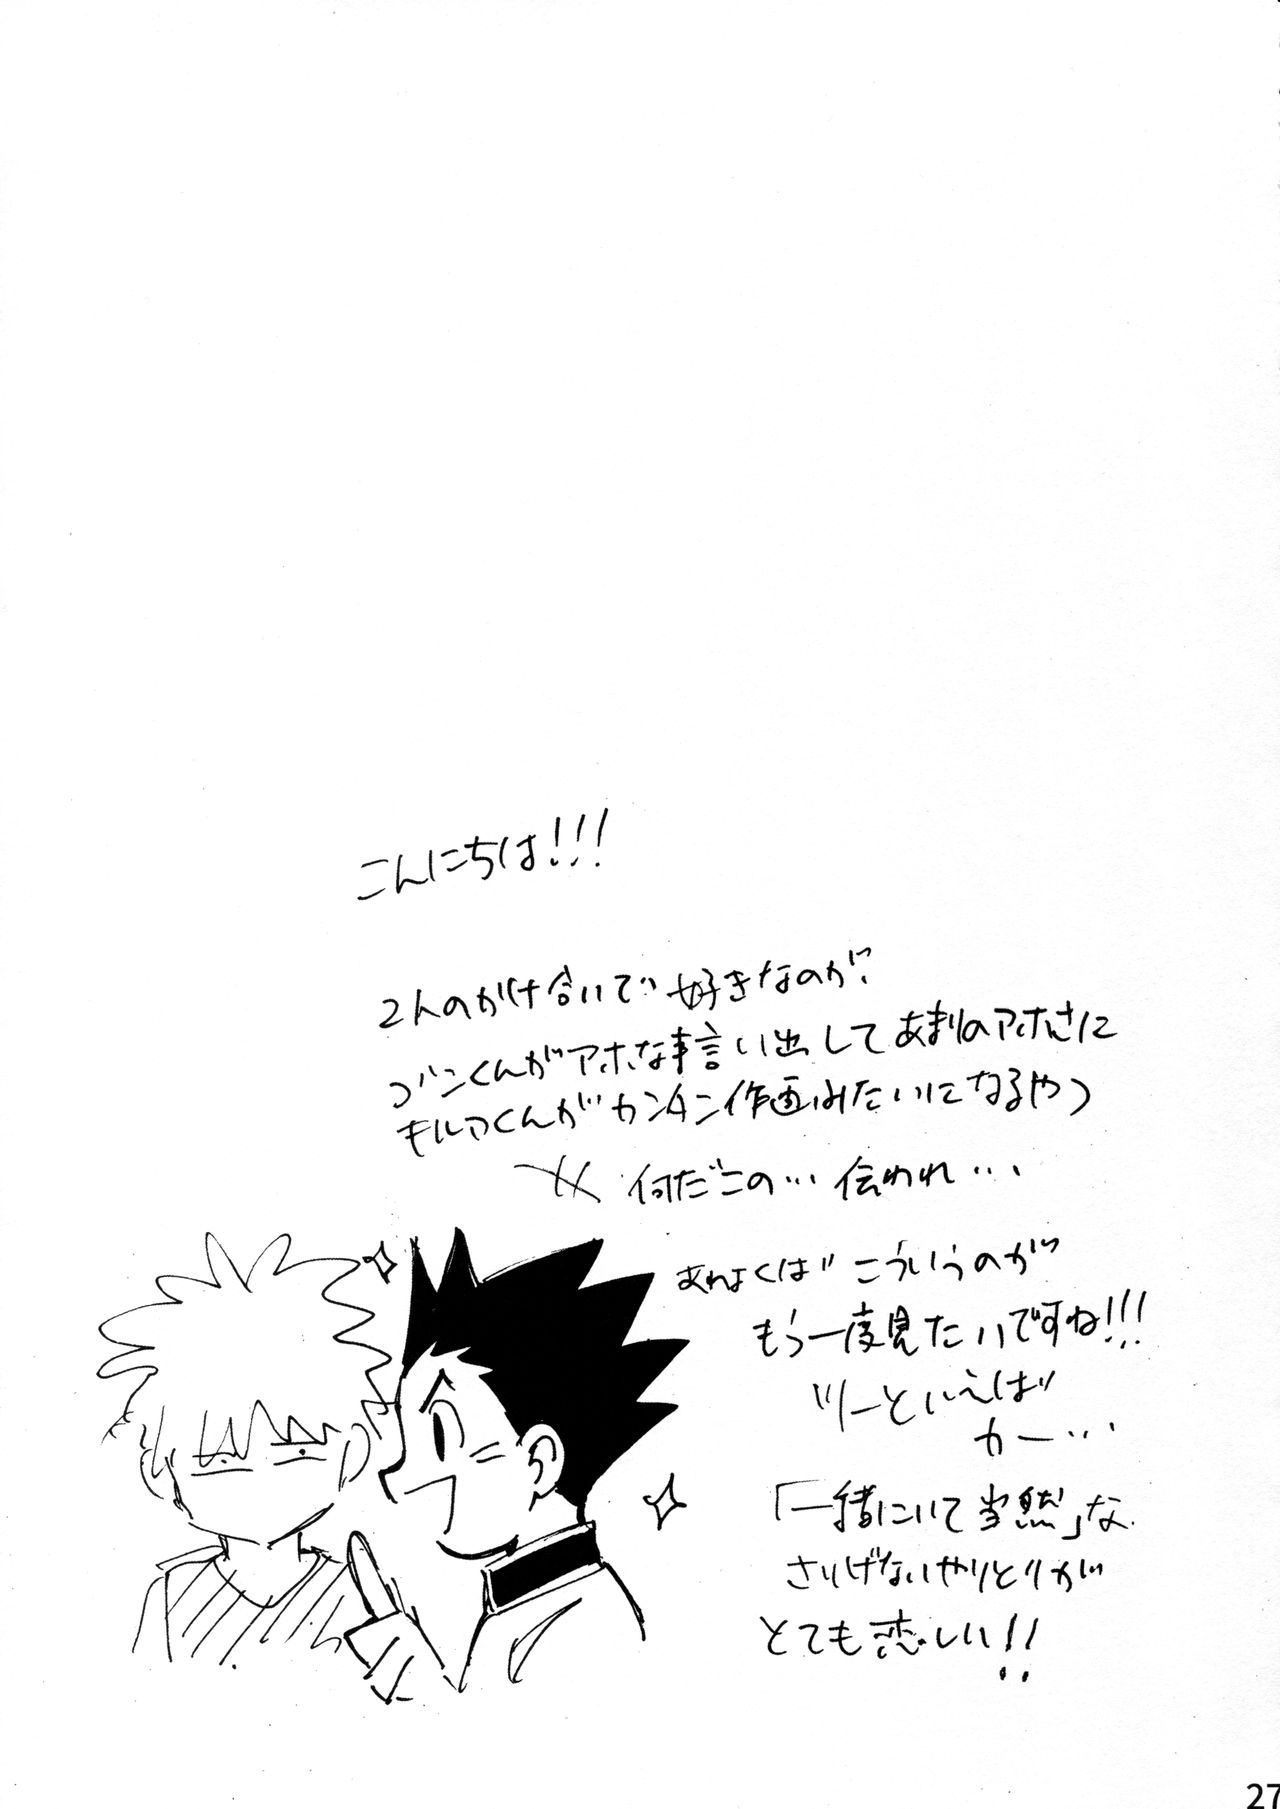 こんにちは!!!
2人のかけ合いで好きなのが
ゴンくんがアホな事言い出してあまりのアホさに
キルアくんがカンタン作画みたいになるやつ
何だこの…伝われ…
あわよくばこういうのが
もう一度見たいですね!!!
ツーといえば
カー…
「一緒にいて当然」な
さりげないやりとりが
とても恋しい!!
27